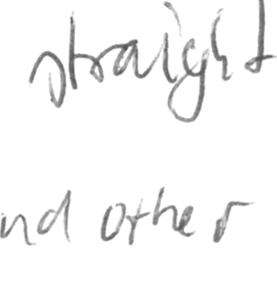 straight
nd other